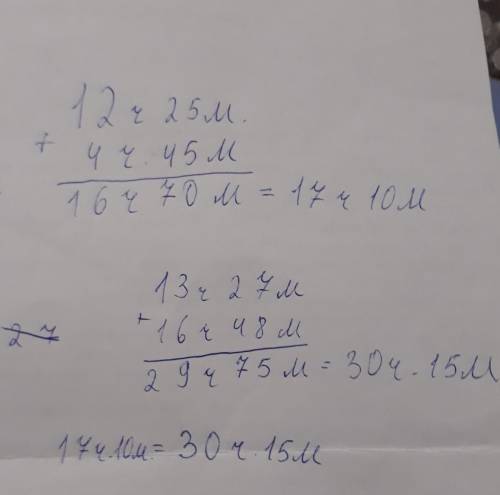 12 ч 25 м.
+ 4 ч. 45 м
16 ч 70 м = 17 ч 10 м
13 ч 27 м
27 + 16 ч 48 м
29 ч 75 м = 30 ч. 15 м
17 ч. 10 м = 30 ч. 15 м